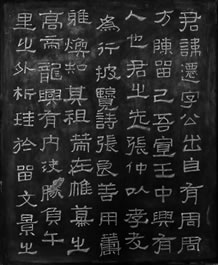 君諱遷字公出自有周周
方陳留己吾宣王中興有
人也君之先張仲以孝友
為行披覽詩張良善用籌
雅煥知其祖策在帷幕之
高帝龍興有內決勝負千
里之外析珪於留文景之